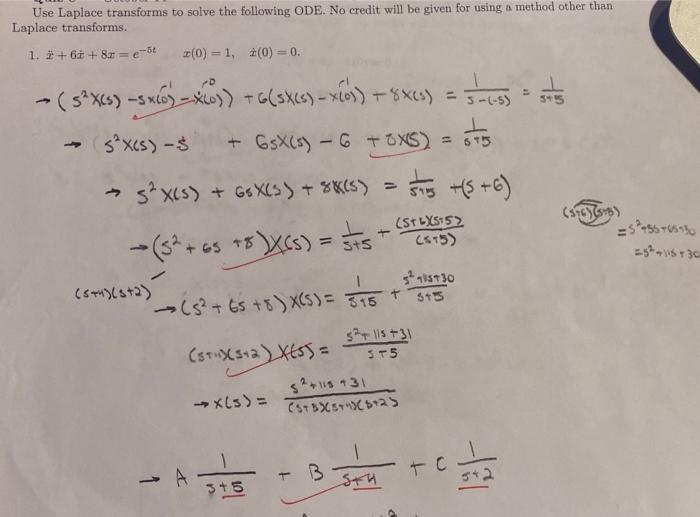 Use Laplace transforms to solve the following ODE. No credit will be given for using a method other than
Laplace transforms.
1. ẍ + 6ẋ + 8x = e^{-5t}   x(0) = 1,   ẋ(0) = 0.
→ (s²X(s) - sx(0)→1 - ẋ(0)→0) + 6(sX(s) - x(0)→1) + 8X(s) = 1/(s-(-5)) = 1/(s+5)
→ (s²X(s) - s + 6sX(s) - 6 + 8X(s) = 1/(s+5)
→ s²X(s) + 6sX(s) + 8X(s) = 1/(s+5) + (s+6)
(s+6)(s+5)
→ (s² + 6s + 8)X(s) = 1/(s+5) + (s+6)(s+5)/(s+5)
= s²+5s+6s+30
= s²+11s+30
(s+4)(s+2)
→ (s² + 6s + 8)X(s) = 1/(s+5) + s²+11s+30/(s+5)
(s+4)(s+2) X(s) = s²+11s+31/(s+5)
→ X(s) = s²+11s+31/(s+5)(s+4)(s+2)
→ A 1/(s+5) + B 1/(s+4) + C 1/(s+2)